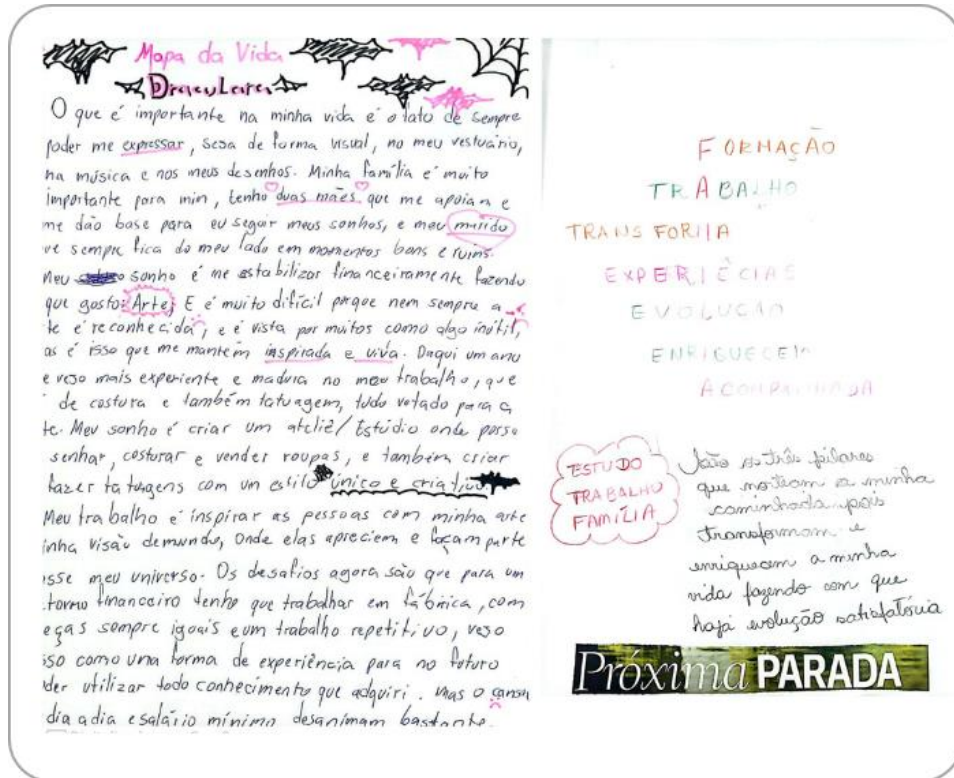 Mapa da Vida
DracuLara
O que é importante na minha vida é o fato de sempre
poder me expressar, seja de forma visual, no meu vestuário,
na música e nos meus desenhos. Minha família é muito
importante para min, tenho duas mães que me apoiam e
me dão base para eu seguir meus sonhos, e meu marido
ue sempre fica do meu lado em momentos bons e ruins.
Meu sonho é me estabilizar financeiramente fazendo
que gosto: Arte; E é muito difícil porque nem sempre a
te é reconhecida, e é vista por muitos como algo inútil,
as é isso que me mantém inspirada e viva. Daqui um ano
e vejo mais experiente e madura no meu trabalho, que
de costura e também tatuagem, tudo votado para a
te. Meu sonho é criar um ateliê/Estúdio onde posso
senhar, costurar e vender roupas, e também criar
fazer tatuagens com un estilo único e criativo.
Meu trabalho é inspirar as pessoas com minha arte
inha visão demundo, Onde elas apreciem e façam parte
esse meu universo. Os desafios agora são que para um
torno financeiro tenho que trabalhar em fábrica, com
eças sempre iguais eum trabalho repetitivo, vejo
sso como uma forma de experiência para no futuro
der utilizar todo conhecimento que adquiri. Mas o
dia a dia e salário mínimo desanimam bastante.
FORMAÇÃO
TRABALHO
TRANSFORMA
EXPERIÊCIAS
EVOLUÇÃO
ENRIQUECEM
ACOMPANHADA
ESTUDO
TRABALHO
FAMÍLIA
São os três pilares
que norteam a minha
caminhada pois
transformam e
enriquecem a minha
vida fazendo com que
haja evolução satisfatória
Próxima PARADA